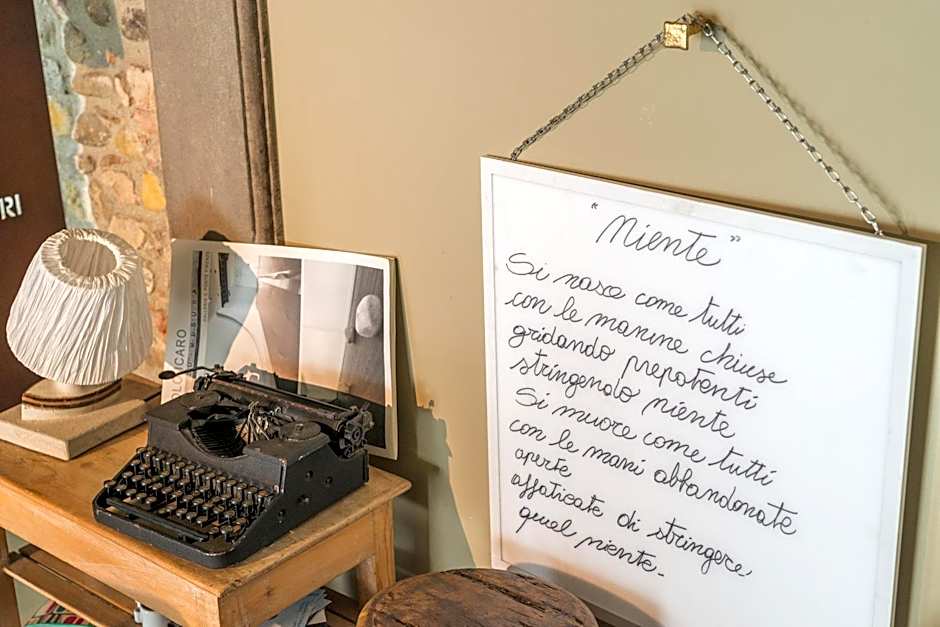 RI
OLOICARO
"Niente"
Si nasce come tutti
con le manine chiuse
gridando prepotenti
stringendo niente
Si muore come tutti
con le mani abbandonate
aperte
affaticate di stringere
quel niente.